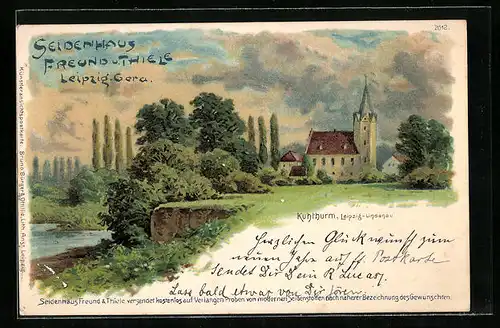 2012.
SEIDENHAUS
FREUND U. THIELE
Leipzig-Gera.
Künstleransichtspostkarte. Bruno Bürger & Ottillie, Lith. Anst. Leipzig.
Kuhthurm, Leipzig-Lindenau
Herzlichen Glückwunsch zum
neuen Jahr auf Postkarte
sendet Dir Dein R
Lass bald etwas von Dir hören.
Seidenhaus Freund & Thiele versendet kostenlos auf Verlangen Proben von modernen Seidenstoffen nach näherer Bezeichnung des Gewünschten.